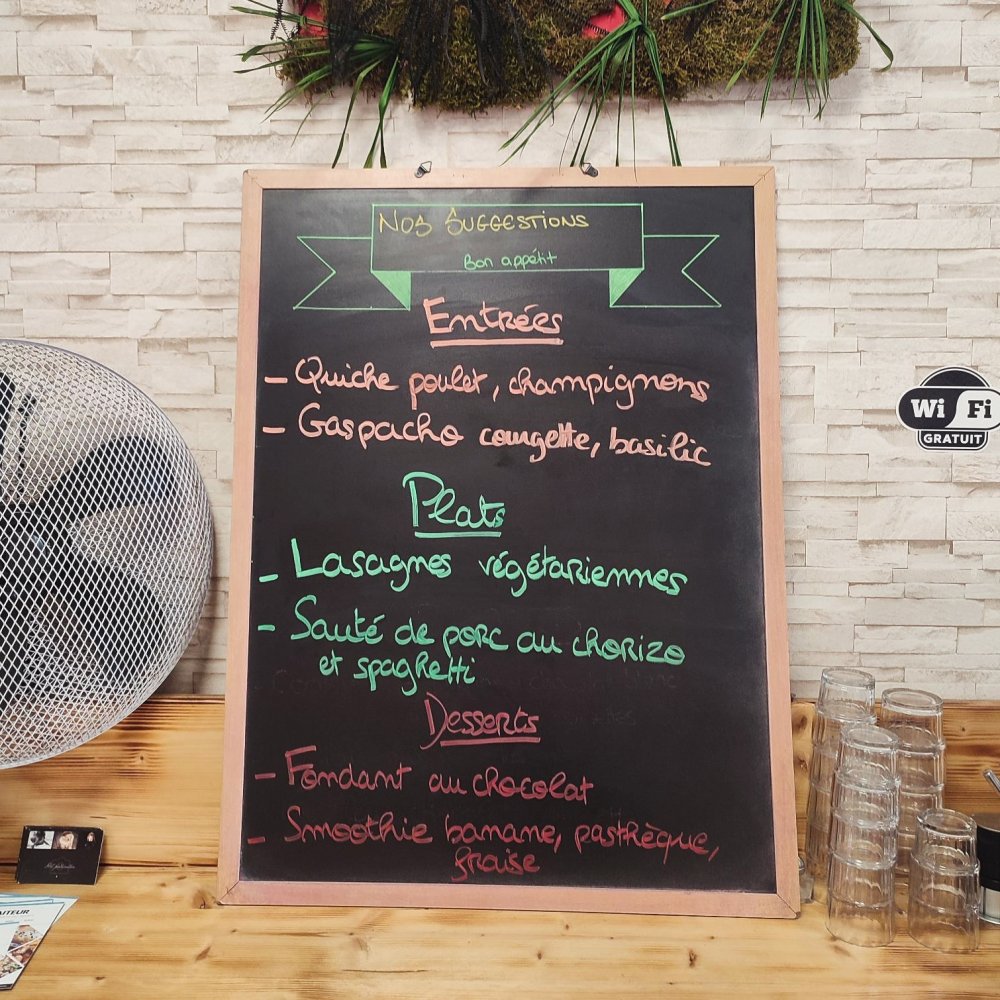 Nos Suggestions
Bon appétit
Entrées
- Quiche poulet, champignons
- Gaspacho courgette, basilic
Plats
- Lasagnes végétariennes
- Sauté de porc au chorizo
et spaghetti
Desserts
- Fondant au chocolat
- Smoothie banane, pasthèque,
fraise
Wi Fi
GRATUIT
AITEUR